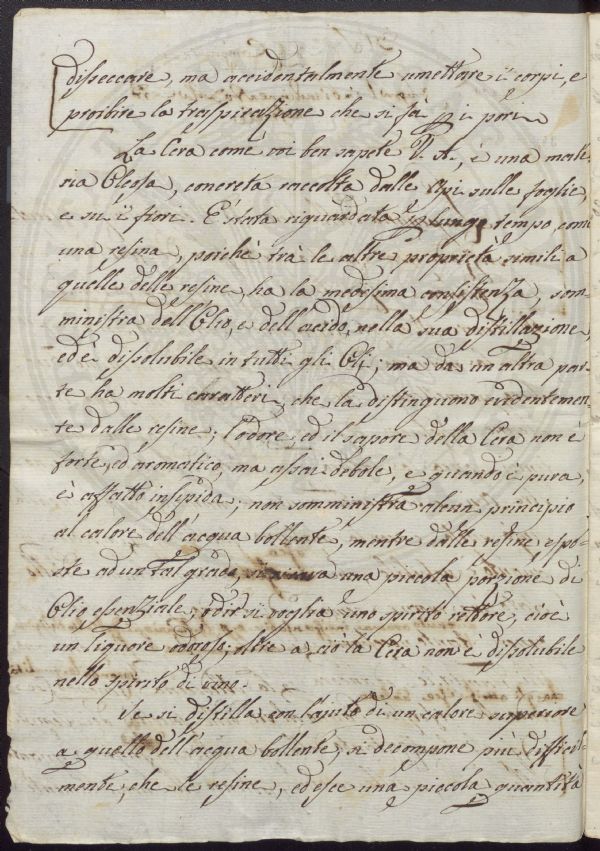 disseccare, ma accidentalmente umettare i corpi, e
proibire la traspirazione che si fà p i pori.
La Cera come voi ben sapete V. A., è una mate-
ria Oleosa, concreta raccolta dalle Api sulle foglie,
e su i fiori. E' stata riguardata lungo tempo come
una resina, poichè trà le altre proprietà simili a
quelle delle resine, ha la medesima consistenza, som-
ministra dell'Olio, e dell'acido, nella sua distillazione,
ed è dissolubile in tutti gli Olj; ma da un altra par-
te ha molti caratteri, che la distinguono evidentemen-
te dalle resine; l'odore, ed il sapore della Cera non è
forte, ed aromatico, ma assai debole, e quando è pura,
è affatto insipida; non somministra alcun principio
al calore dell'acqua bollente, mentre dalle resine espo-
ste ad un tal grado, si ricava una piccola porzione di
Olio essenziale, o dir si voglia uno spirito rettore, cioè
un liquore odoroso; oltre a ciò la Cera non è dissolubile
nello spirito di vino.
Se si distilla con l'ajuto di un calore superiore
a quello dell'acqua bollente, si decompone più difficil-
mente, che le resine, ed esce una piccola quantità